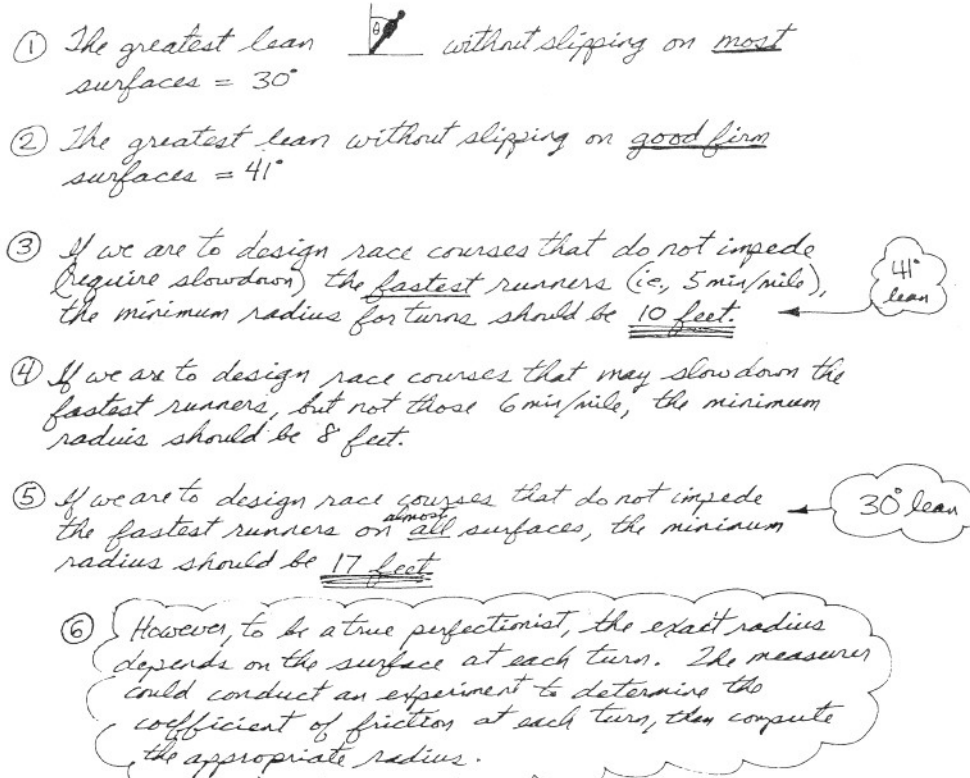 ① The greatest lean θ without slipping on most
surfaces = 30°
② The greatest lean without slipping on good firm
surfaces = 41°
③ If we are to design race courses that do not impede
(require slowdown) the fastest runners (ie., 5 min/mile),
the minimum radius for turns should be 10 feet.
41°
lean
④ If we are to design race courses that may slow down the
fastest runners, but not those 6 min/mile, the minimum
radius should be 8 feet.
⑤ If we are to design race courses that do not impede
the fastest runners on almost all surfaces, the minimum
radius should be 17 feet
30° lean
⑥ However, to be a true perfectionist, the exact radius
depends on the surface at each turn. The measurer
could conduct an experiment to determine the
coefficient of friction at each turn, then compute
the appropriate radius.